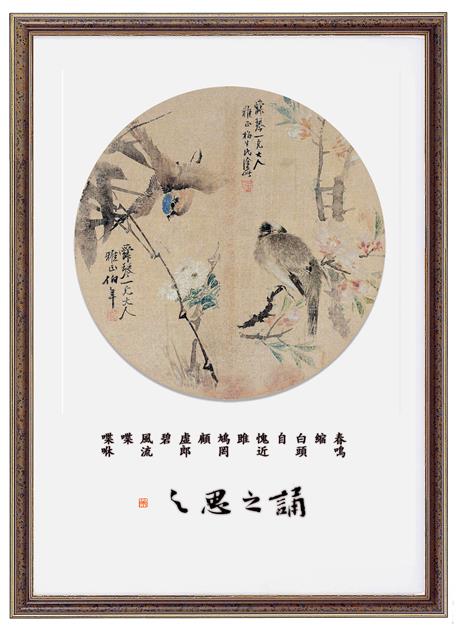 琴一兄大人
雅正
琴一兄大人
雅正伯年
春鳴
縮
白頭
自
愧近
雎
鳩罔
顧
虛郎
碧
風流
喋
喋咻
誦之思之